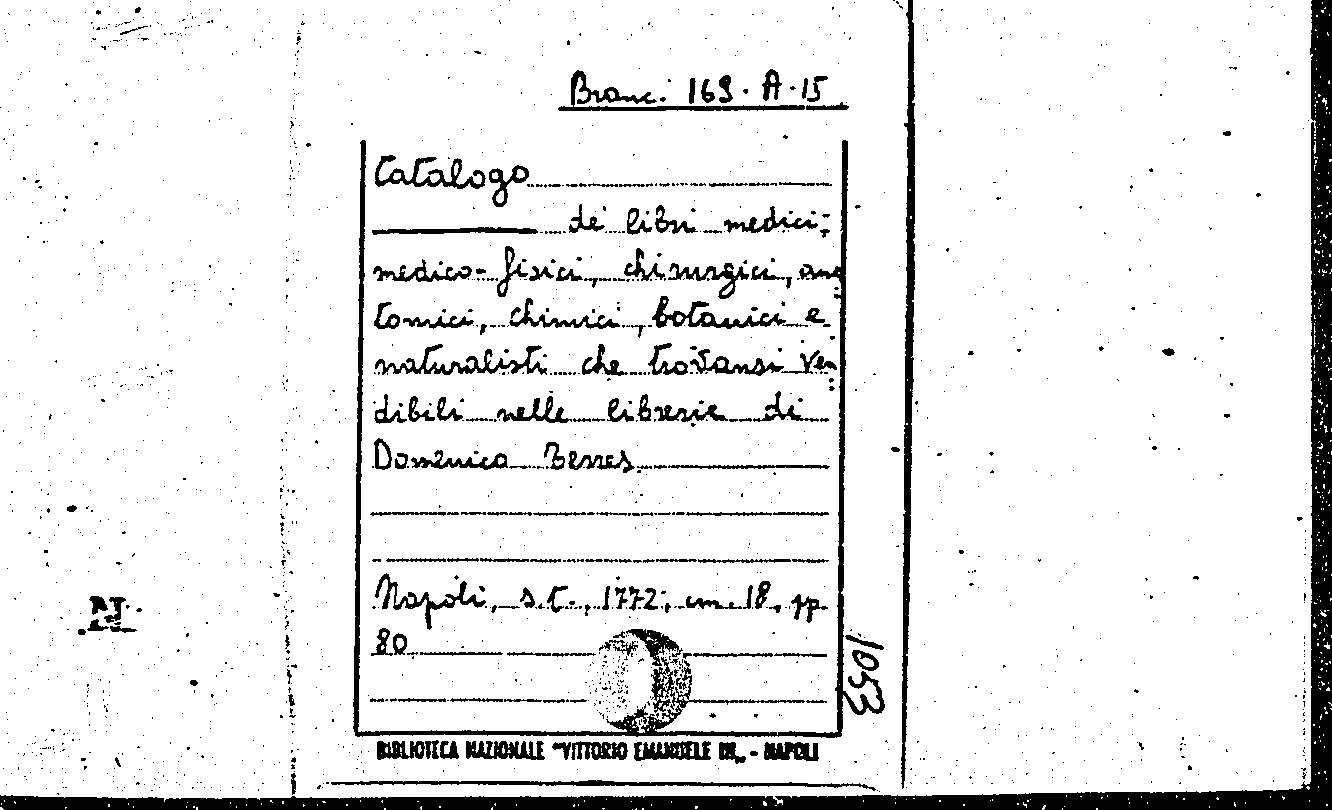 Branc. 169. A. 15
Catalogo
de' libri medici,
medico-fisici, chirurgici, ana
tomici, chimici, botanici e
naturalisti che trovansi ven
dibili nelle librerie di
Domenico Terres
Napoli, s.t., 1772, cm. 18, pp.
80
1053
BIBLIOTECA NAZIONALE "VITTORIO EMANUELE III„ - NAPOLI